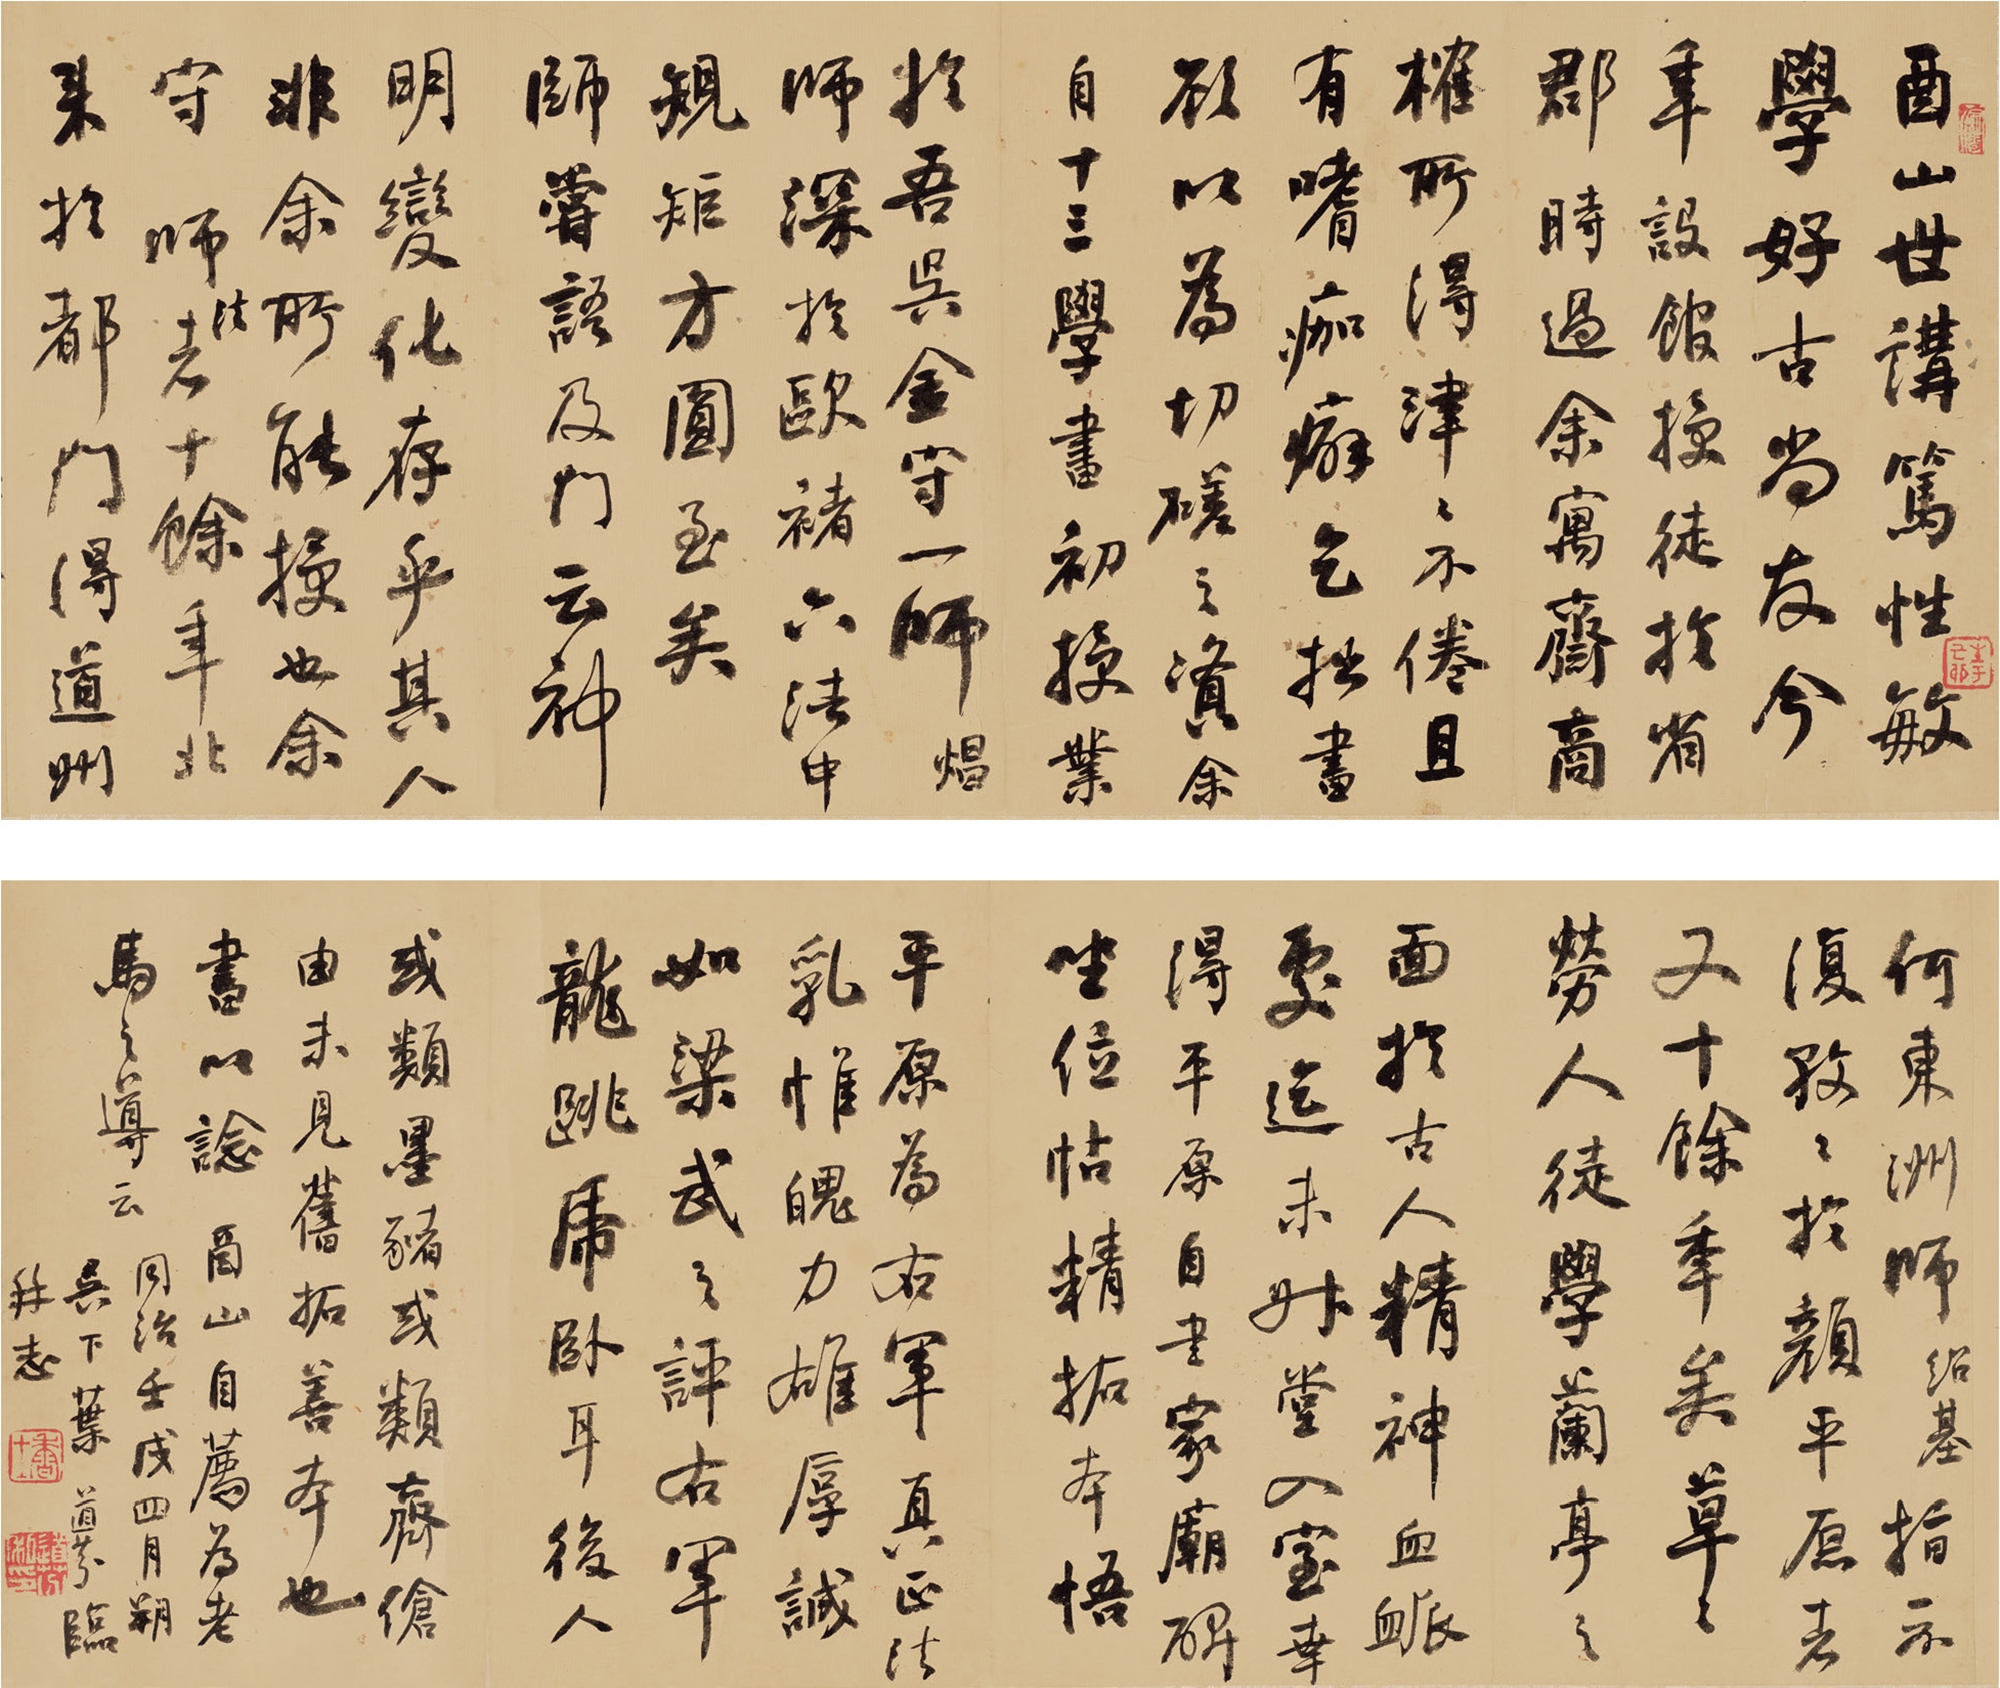 酉山世講篤性敏
學好古尚友今
年設館授徒於省
郡時過余寓齋商
榷所得津〻不倦且
有嗜痂癖乞拙書
欲以為切磋之資余
自十三學書初授業
於吾吳金守一師焻
師深於歐褚六法中
規矩方圓至矣
師嘗語及門云神
明變化存乎其人
非余所能授也余
守師法者十餘年北
來於都門得道州
何東洲師紹基指示
復孜〻於顏平原者
又十餘年矣草〻
勞人徒學蘭亭之
面於古人精神血脈
處迄未升堂入室幸
得平原自書家廟碑
坐位帖精拓本悟
平原為右軍真正法
乳惟魄力雄厚誠
如梁武之評右軍
龍跳虎臥耳後人
或類墨豬或類齊傖
由未見舊拓善本也
書以諗酉山自薦為老
馬之導云
同治壬戌四月朔
吳下葉道芬臨
并志